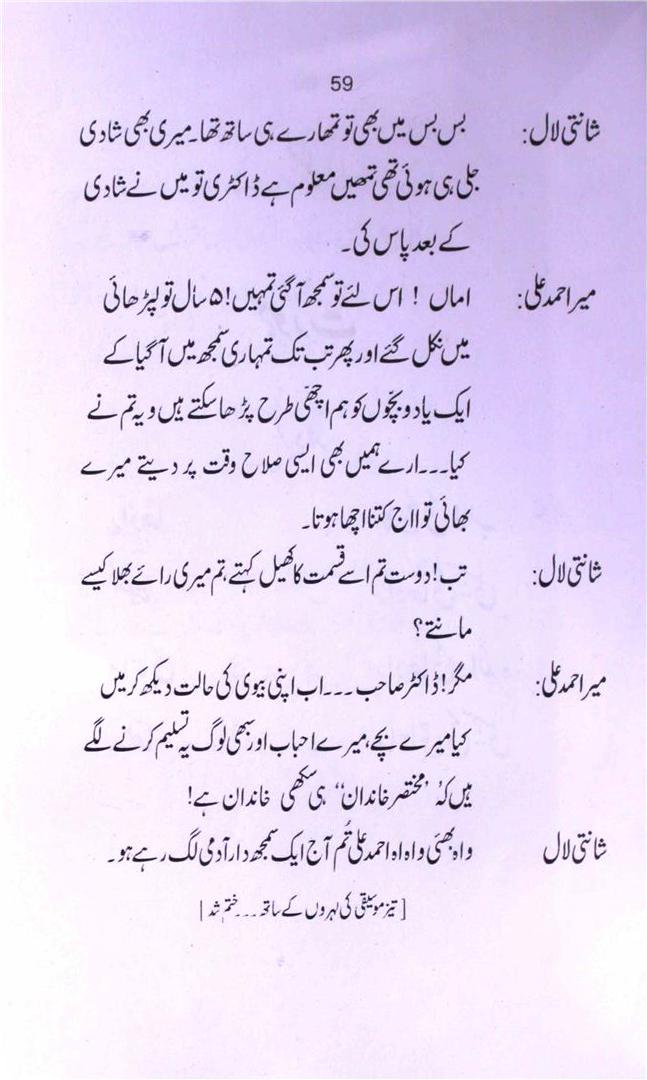 59
شانتی لال: بس بس میں بھی تو تمھارے ہی ساتھ تھا۔ میری بھی شادی
جلی ہی ہوئی تھی تمھیں معلوم ہے ڈاکٹری تو میں نے شادی
کے بعد پاس کی۔
میر احمد علی: اماں ! اس لئے تو سمجھ آ گئی تمہیں! ۵ سال تو لپڑھائی
میں نکل گئے اور پھر تب تک تمہاری سمجھ میں آ گیا کے
ایک یا دو بچّوں کو ہم اچھّی طرح پڑھا سکتے ہیں و یہ تم نے
کیا۔۔۔ ارے ہمیں بھی ایسی صلاح وقت پر دیتے میرے
بھائی تو ااج کتنا اچھا ہوتا۔
شانتی لال: تب! دوست تم اسے قسمت کا کھیل کہتے، تم میری رائے بھلا کیسے
مانتے؟
میر احمد علی: مگر! ڈاکٹر صاحب ۔۔۔ اب اپنی بیوی کی حالت دیکھ کر میں
کیا میرے بچے، میرے احباب اور سبھی لوگ یہ تسلیم کرنے لگے
ہیں کہُ ’مختصر خاندان‘‘ ہی سکھی خاندان ہے!
شانتی لال واہ بھئی واہ اہ احمد علی تُم آج ایک سمجھ دار آدمی لگ رہے ہو۔
[ تیز موسیقی کی لہروں کے ساتھ ۔۔۔ ختم شد ]